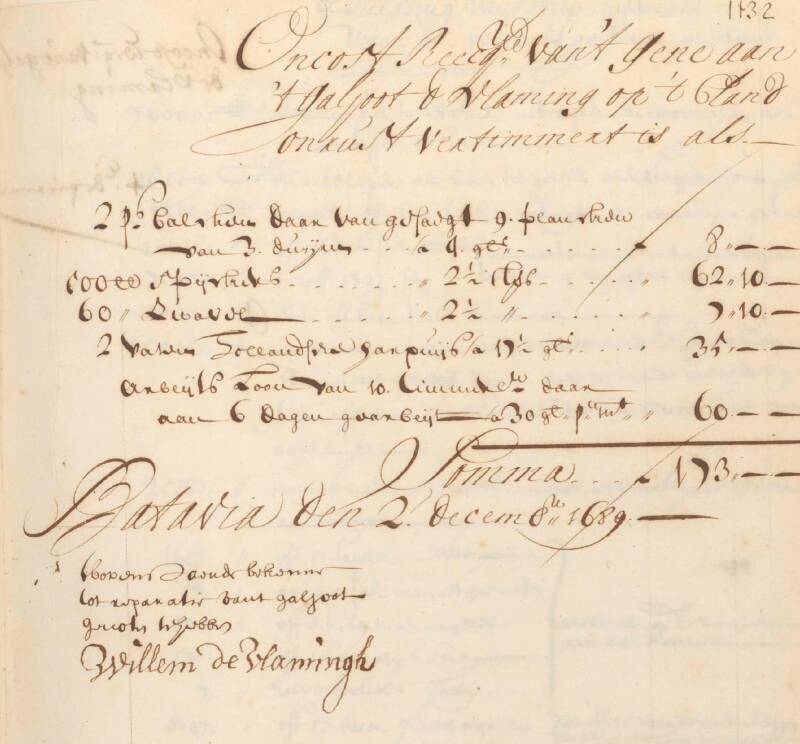 1132
Oncost Reecq. van't gene aan
't galjoot d' Vlaming op 't Eland
onrust vertimmert is als
2 ps. balcken daar van gesaegt 9. plancken
van 3. duijm a 4. gls. 8 „ —
spijckers „ 2½ „ 62 „ 10 —
60 „ „ 2½ „ 7 „ 10 —
2 vaten hollandsche harpuijs a 17½ gls 35 — —
Arbeijts Loon van 10. timmerls daar
aan 6 dagen gearbeijt a 30 gls. pr. mt „ 60 — —
Somma 173 — —
Batavia den 2. decembr. 1689.
bovenstaende bekenne
tot reparatie vant galjoot
genoten te hebben
Willem de Vlamingh